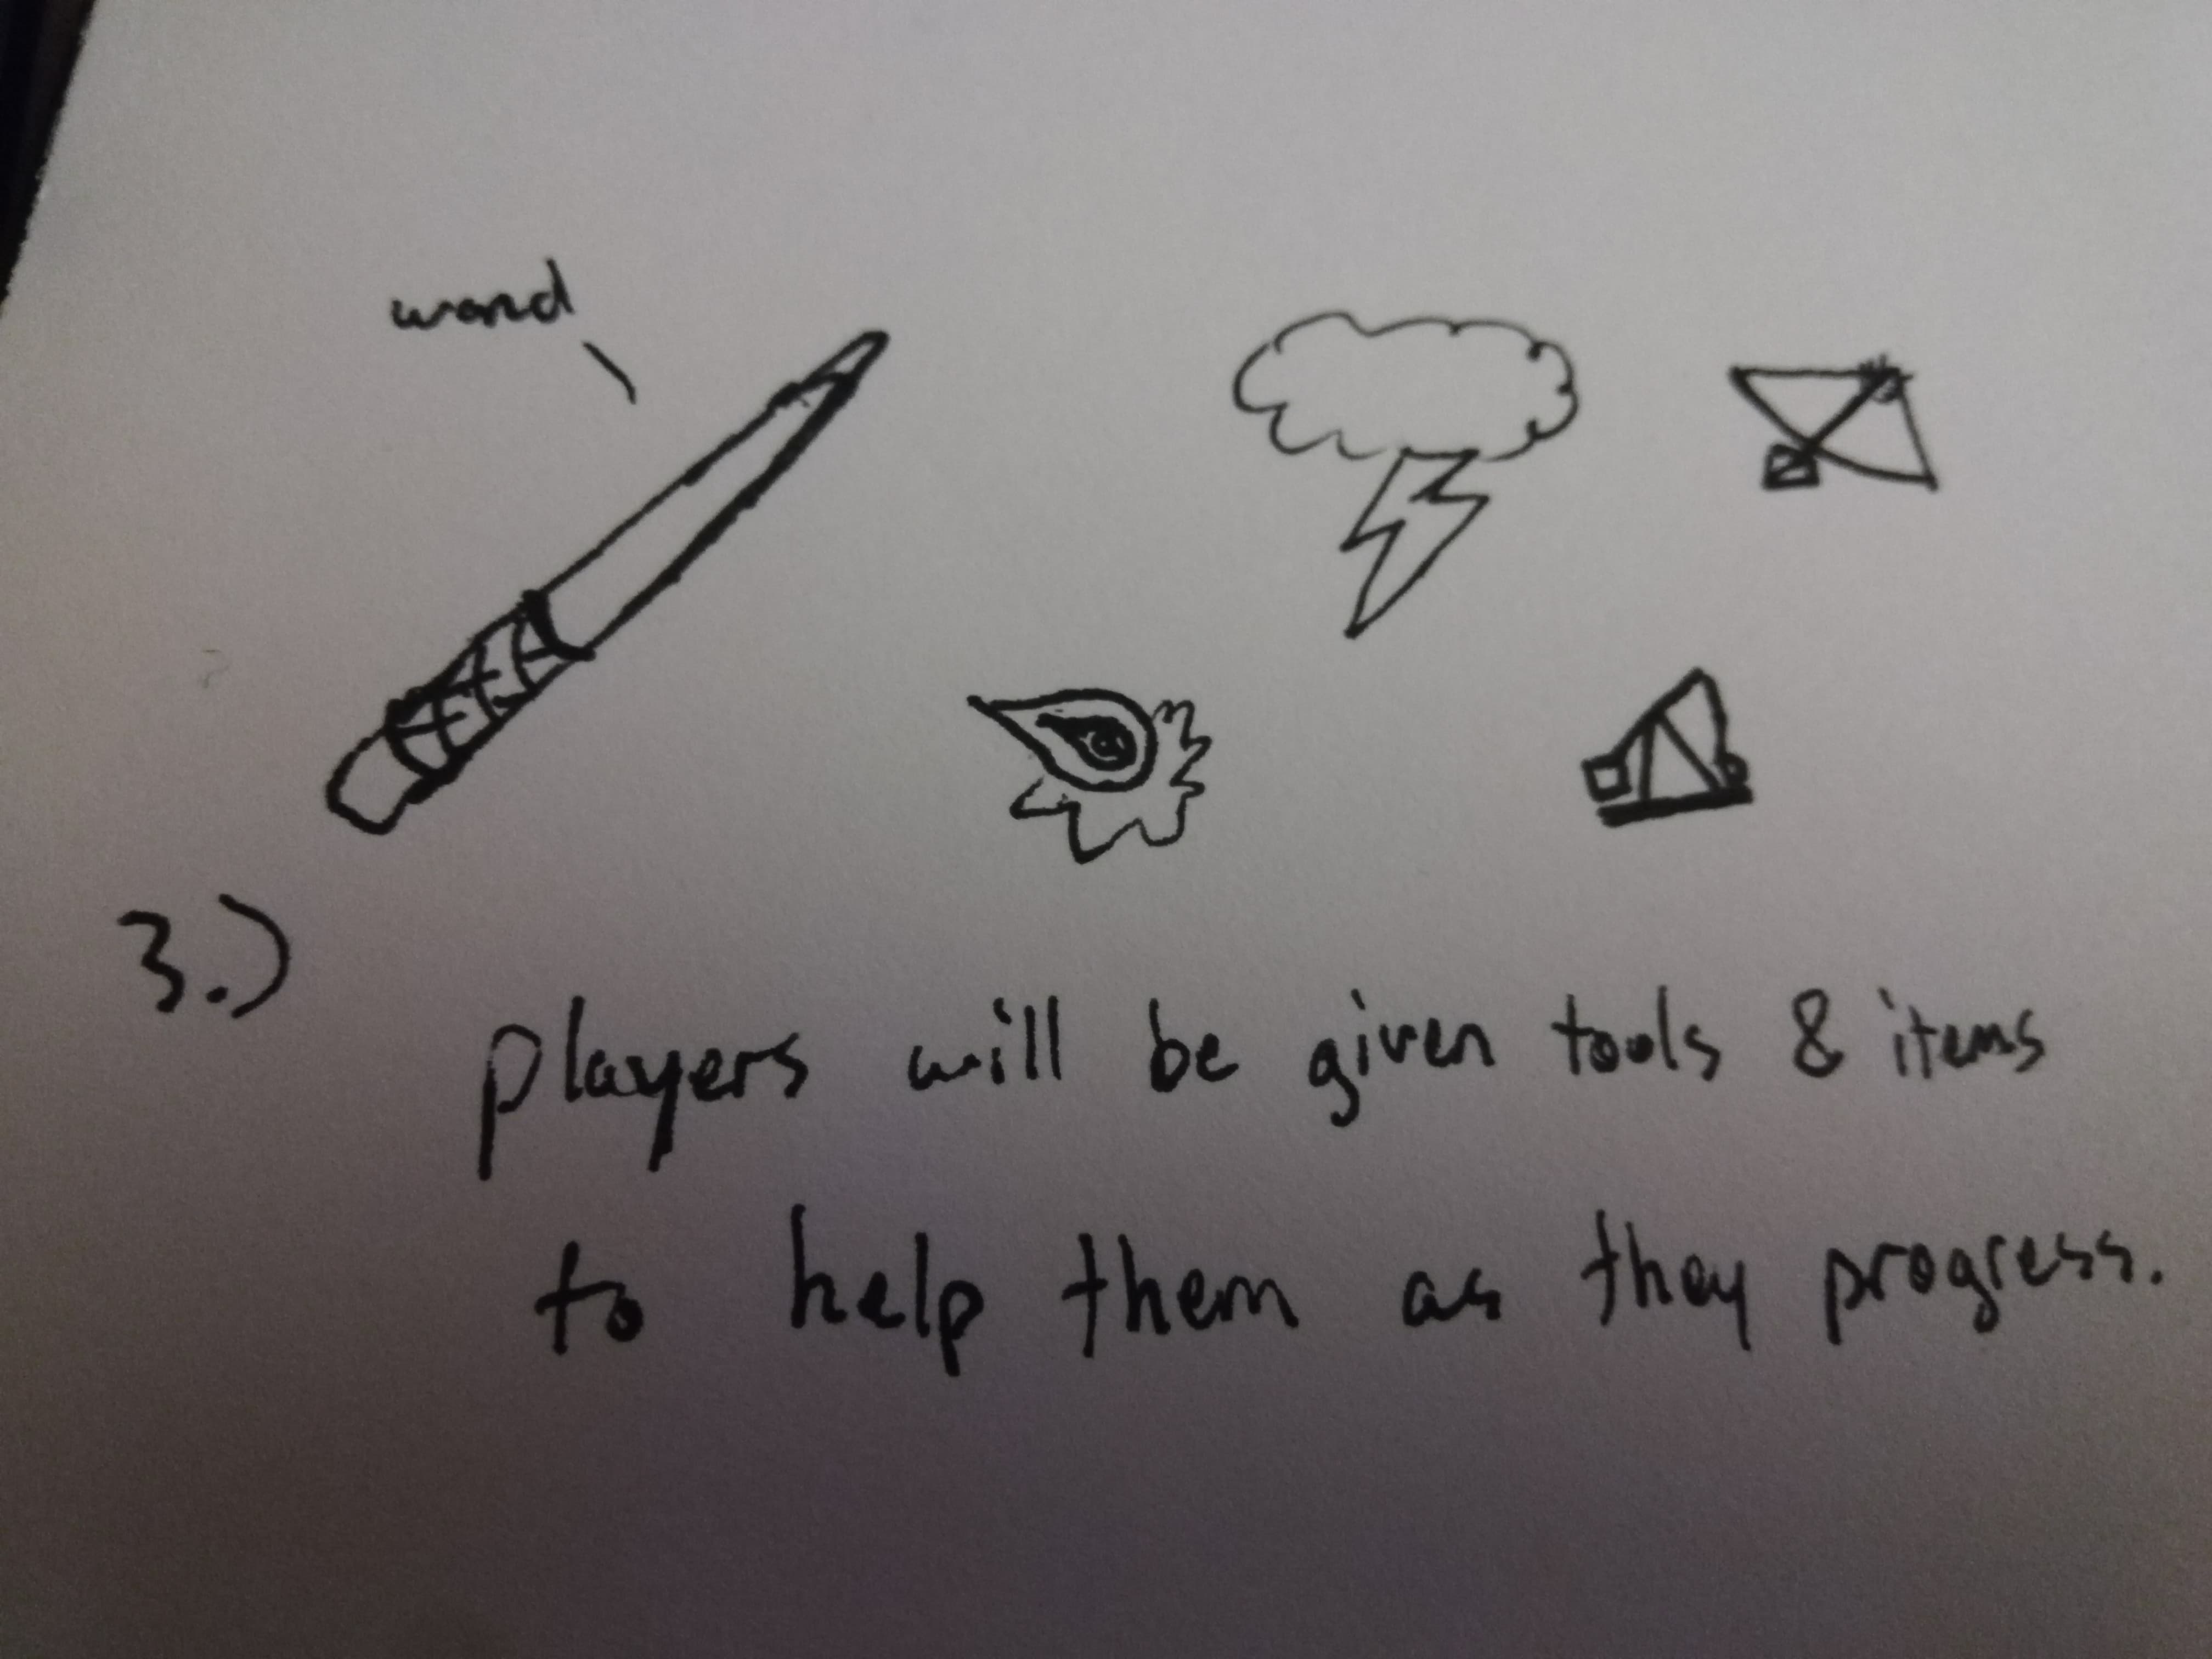 wand
3.)
players will be given tools & items
to help them as they progress.